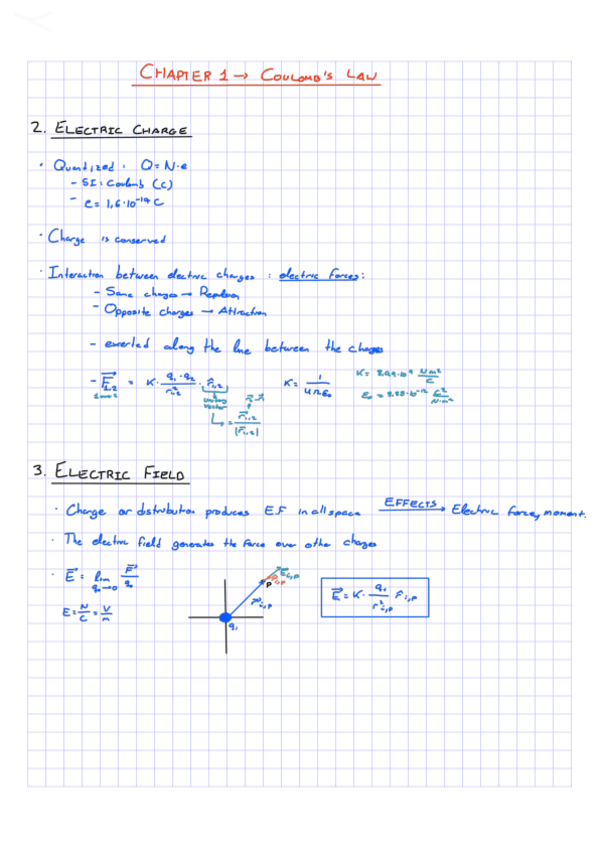 CHAPTER 1 → COULOMB'S LAW
2. ELECTRIC CHARGE
· Quantized · Q = N·e
- SI: Coulomb (C)
- e = 1,6·10⁻¹⁹ C
· Charge is conserved
· Interaction between electric charges : electric forces:
- Same charges → Repulsion
- Opposite charges → Attraction
- exerted along the line between the charges
- F⃗₁,₂ = K · q₁·q₂ / r²₁,₂ · r̂₁,₂ K = 1 / 4πε₀ K = 8.99·10⁹ Nm² / C
1 on 2 unitary vector ε₀ = 8.85·10⁻¹² C² / N·m²
↳ = r⃗₁,₂ / |r⃗₁,₂|
3. ELECTRIC FIELD
· Charge or distribution produces EF in all space EFFECTS → Electric force, moment.
· The electric field generates the force over other charges
· E⃗ = lim q₀→0 F⃗ / q₀
E = N / C = V / m
E⃗i,p
P
r⃗i,p
qi
E⃗ = K · qi / r²i,p r̂i,p